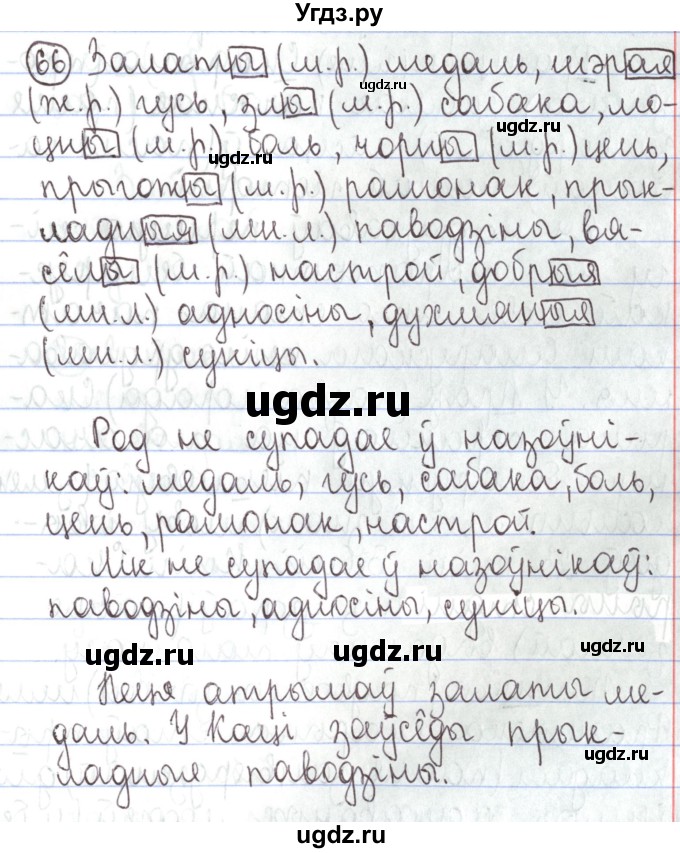 Угдз.ру
66 Залаты (м.р.) медаль, шэрая
(ж.р.) гусь, злы (м.р.) сабака, мо-
цны (м.р.) боль, чорны (м.р.) цень,
прыгожы (м.р.) рамонак, прык-
ладныя (мн.л.) паводзіны, вя-
сёлы (м.р.) настрой, добрыя
(мн.л.) адносіны, духмяныя
(мн.л.) суніцы.
ugdz.ru
Род не супадае ў назоўні-
каў: медаль, гусь, сабака, боль,
цень, рамонак, настрой.
Лік не супадае ў назоўнікаў:
паводзіны, адносіны, суніцы.
ugdz.ru
ugdz.ru
Пеця атрымаў залаты ме-
даль. У Каці заўсёды прык-
ладныя паводзіны.
ugdz.ru
ugdz.ru
ugdz.ru
ugdz.ru
ugdz.ru